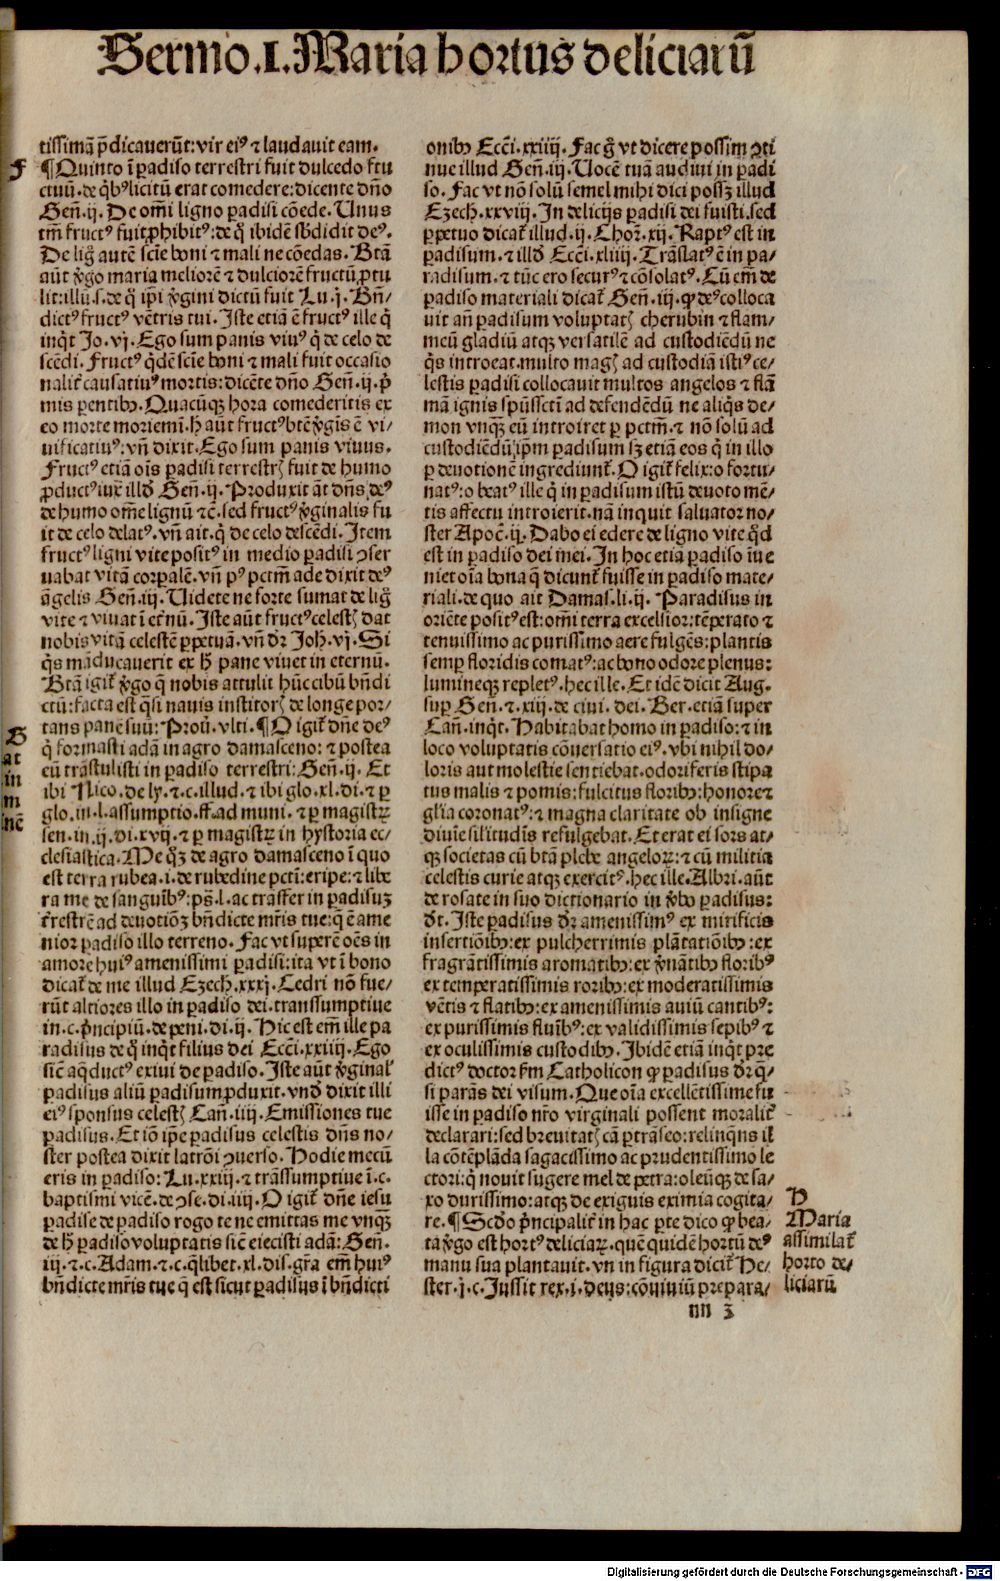 Sermo .I. Maria hortus deliciarũ
tissimã p̃dicauerũt: vir eiꝰ ⁊ laudauit eam.
F
¶Quinto ĩ padiso terrestri fuit dulcedo fru
ctuũ. de q̃bꝰ licitũ erat comedere: dicente dño
Geñ. ij. De om̃i ligno padisi cõede. Unus
tm̃ fructꝰ fuit ꝓhibitꝰ: de q̃ ibidem sb̃didit deꝰ.
De lig̃ autẽ scĩe boni ⁊ mali ne cõedas. Btã
aũt v̓go maria meliorẽ ⁊ dulciorẽ fructũ ꝓtu
lit: illũ .s. de q̃ ip̃i v̓gini dictũ fuit Lu. j. Bñ/
dictꝰ fructꝰ vẽtris tui. Iste etiã ẽ fructꝰ ille q̃
inq̃t Jo. vj. Ego sum panis viuꝰ q̃ de celo de
scẽdi. Fructꝰ q̃dẽ scĩe boni ⁊ mali fuit occasio
nalit̃ causatiuꝰ mortis: dicẽte dño Geñ. ij. p̃
mis parentibꝫ. Quacũqꝫ hora comederitis ex
eo morte moriemĩ. h̃ aũt fructꝰ btẽ v̓gis ẽ vi/
uificatiuꝰ: vñ dixit. Ego sum panis viuus.
Fructꝰ etiã oĩs padisi terrestrꝭ fuit de humo
ꝓductꝰ iux̃ illd̃ Geñ. ij. Produxit aũt dñs deꝰ
de humo om̃e lignũ ⁊ c̃. sed fructꝰ v̓ginalis fu
it de celo delatꝰ. vñ ait. q̃ de celo descẽdi. Item
fructꝰ ligni vite positꝰ in medio padisi ꝯser
uabat vitã corꝑalẽ. vñ pꝰ pctm̃ ade dixit deꝰ
ãgelis Geñ. iij. Uidete ne forte sumat de lig̃
vite ⁊ viuat ĩ et̃nũ. Iste aũt fructꝰ celestꝭ dat
nobis vitã celestẽ ꝑpetuã. vñ dr̃ Joh̃. vj. Si
q̃s mãducauerit ex h̃ pane viuet in eternũ.
Btã igit̃ v̓go q̃ nobis attulit hũc cibũ bñdi
ctũ: facta est q̃si nauis institorꝭ de longe por/
tans panẽ suũ: Prou̓. vlti. ¶O igit̃ dñe deꝰ
G
q̃ formasti adã in agro damasceno: ⁊ postea
at
eũ trãstulisti in padiso terrestri: Geñ. ij. Et
in
ibi Nico. de ly. ⁊ .c. illud. ⁊ ibi glo. xl. di. ⁊ ꝑ
m
glo. in .l. assumptio. ff. ad muni. ⁊ ꝑ magistꝝ
nẽ
sen. in .ij. di. xvij. ⁊ ꝑ magistꝝ in hystoria ec/
clesiastica. Me q̃ꝫ de agro damasceno ĩ quo
est terra rubea .i. de rubedine pcti: eripe: ⁊ libe
ra me de sanguĩbꝰ: ps̃. l. ac trãsfer in padisuꝫ
t̃restrẽ ad deuotiõꝫ bñdicte mr̃is tue: q̃ ẽ ame
nior padiso illo terreno. Fac vt superẽ oẽs in
amore huiꝰ amenissimi padisi: ita vt ĩ bono
dicat̃ de me illud Ezech̃. xxxj. Cedri nõ fue/
rũt altiores illo in padiso dei. transsumptiue
in .c. p̃ncipiũ. de peni. di. ij. Hic est em̃ ille pa
radisus de q̃ inq̃t filius dei Ecc̃i. xxiiij. Ego
sic̃ aq̃ductꝰ exiui de padiso. Iste aũt v̓ginal̃
padisus aliũ padisum ꝓduxit. vnd̃ dixit illi
eiꝰ sponsus celestꝭ Cañ. iiij. Emissiones tue
padisus. Et iõ ip̃e padisus celestis dñs no/
ster postea dixit latrõi ꝯuerso. Hodie mecũ
eris in padiso: Lu. xxiij. ⁊ trãssumptiue ĩ .c.
baptismi vicẽ. de ꝯse. di. iiij. O igit̃ dñe iesu
padise de padiso rogo te ne emittas me vnqꝫ̃
de h̃ padiso voluptatis sic̃ eiecisti adã: Geñ.
iij. ⁊ .c. Adam. ⁊ .c. q̃libet. xl. dis. gr̃a em̃ huiꝰ
bñdicte mr̃is tue q̃ est sicut padisus ĩ bñdicti
onibꝫ Ecc̃i. xxiiij. Fac g̃ vt dicere possim ꝯti
nue illud Geñ. iij. Uocẽ tuã audiui in padi
so. Fac vt nõ solũ semel mihi dici possꝫ illud
Ezech̃. xxviij. In delicijs padisi dei fuisti. sed
ꝑpetuo dicat̃ illud. ij. Chor̃. xij. Raptꝰ est in
padisum. ⁊ illd̃ Ecc̃i. xliiij. Trãslatꝰ ẽ in pa/
radisum. ⁊ tũc ero securꝰ ⁊ cõsolatꝰ. Cũ em̃ de
padiso materiali dicat̃ Geñ. iij. ꝙ deꝰ colloca
uit añ padisum voluptatꝭ cherubin ⁊ flam/
meũ gladiũ atqꝫ versatilẽ ad custodiẽdũ ne
q̃s introeat. multo magꝭ ad custodiã istiꝰ ce/
lestis padisi collocauit multos angelos ⁊ flã
mã ignis sp̃ussctĩ ad defendẽdũ ne aliq̃s de/
mon vnqꝫ̃ eũ introiret ꝑ pctm̃. ⁊ nõ solũ ad
custodiẽdũ ip̃m padisum sꝫ etiã eos q̃ in illo
ꝑ deuotionẽ ingrediunt̃. O igit̃ felix: o fortu/
natꝰ: o beatꝰ ille q̃ in padisum istũ deuoto mẽ/
tis affectu introierit. nã inquit saluator no/
ster Apoc̃. ij. Dabo ei edere de ligno vite q̃d
est in padiso dei mei. In hoc etiã padiso ĩue
niet oĩa bona q̃ dicunt̃ fuisse in padiso mate/
riali. de quo ait Damas. li. ij. Paradisus in
oriẽte positꝰ est: om̃i terra excelsior: tẽperato ⁊
tenuissimo ac purissimo aere fulgẽs: plantis
semꝑ floridis comatꝰ: ac bono odore plenus:
lumineqꝫ repletꝰ. hec ille. Et idẽ dicit Aug.
suꝑ Gen. ⁊ .xiij. de ciui. dei. Ber. etiã super
Cañ. inq̃t. Habitabat homo in padiso: ⁊ in
loco voluptatis cõuersatio eiꝰ. vbi nihil do/
loris aut molestie sentiebat. odoriferis stipa
tus malis ⁊ pomis: fulcitus floribꝫ: honore ⁊
gl̃ia coronatꝰ: ⁊ magna claritate ob insigne
diuĩe sil̃itudĩs refulgebat. Et erat ei sors at/
qꝫ societas cũ btã plebe angeloꝝ: ⁊ cũ militia
celestis curie atqꝫ exercitꝰ. hec ille. Albri. aũt
de rosate in suo dictionario in v̓bo padisus:
dt̃. Iste padisus dr̃ amenissimꝰ ex mirificis
insertiõibꝫ: ex pulcherrimis plãtatiõibꝫ: ex
fragrãtissimis aromatibꝫ: ex v̓nãtibꝫ floribꝰ
ex temperatissimis roribꝫ: ex moderatissimis
vẽtis ⁊ flatibꝫ: ex amenissimis auiũ cantibꝰ:
ex purissimis fluĩbꝰ: ex validissimis sepibꝰ ⁊
ex oculissimis custodibꝫ. Ibidẽ etiã inq̃t pre
dictꝰ doctor fm̃ Catholicon ꝙ padisus dr̃ q̃/
si parãs dei visum. Que oĩa excellẽtissime fu
isse in padiso nr̃o virginali possent moralit̃
declarari: sed breuitatꝭ cã ꝑtrãseo: relinq̃ns il̃
la cõtẽplãda sagacissimo ac prudentissimo le
ctori: q̃ nouit sugere mel de petra: oleũqꝫ de sa/
xo durissimo: atqꝫ de exiguis eximia cogita/
H
re. ¶Scd̃o p̃ncipalit̃ in hac ꝑte dico ꝙ bea/
Maria
ta v̓go est hortꝰ deliciaꝝ. quẽ quidẽ hortũ deꝰ
assimilat̃
manu sua plantauit. vñ in figura dicit̃ He/
horto de/
ster. j. c. Jussit rex .i. deus: cõuiuiũ prepara/
liciarũ
nn 3
Digitalisierung gefördert durch die Deutsche Forschungsgemeinschaft - DFG